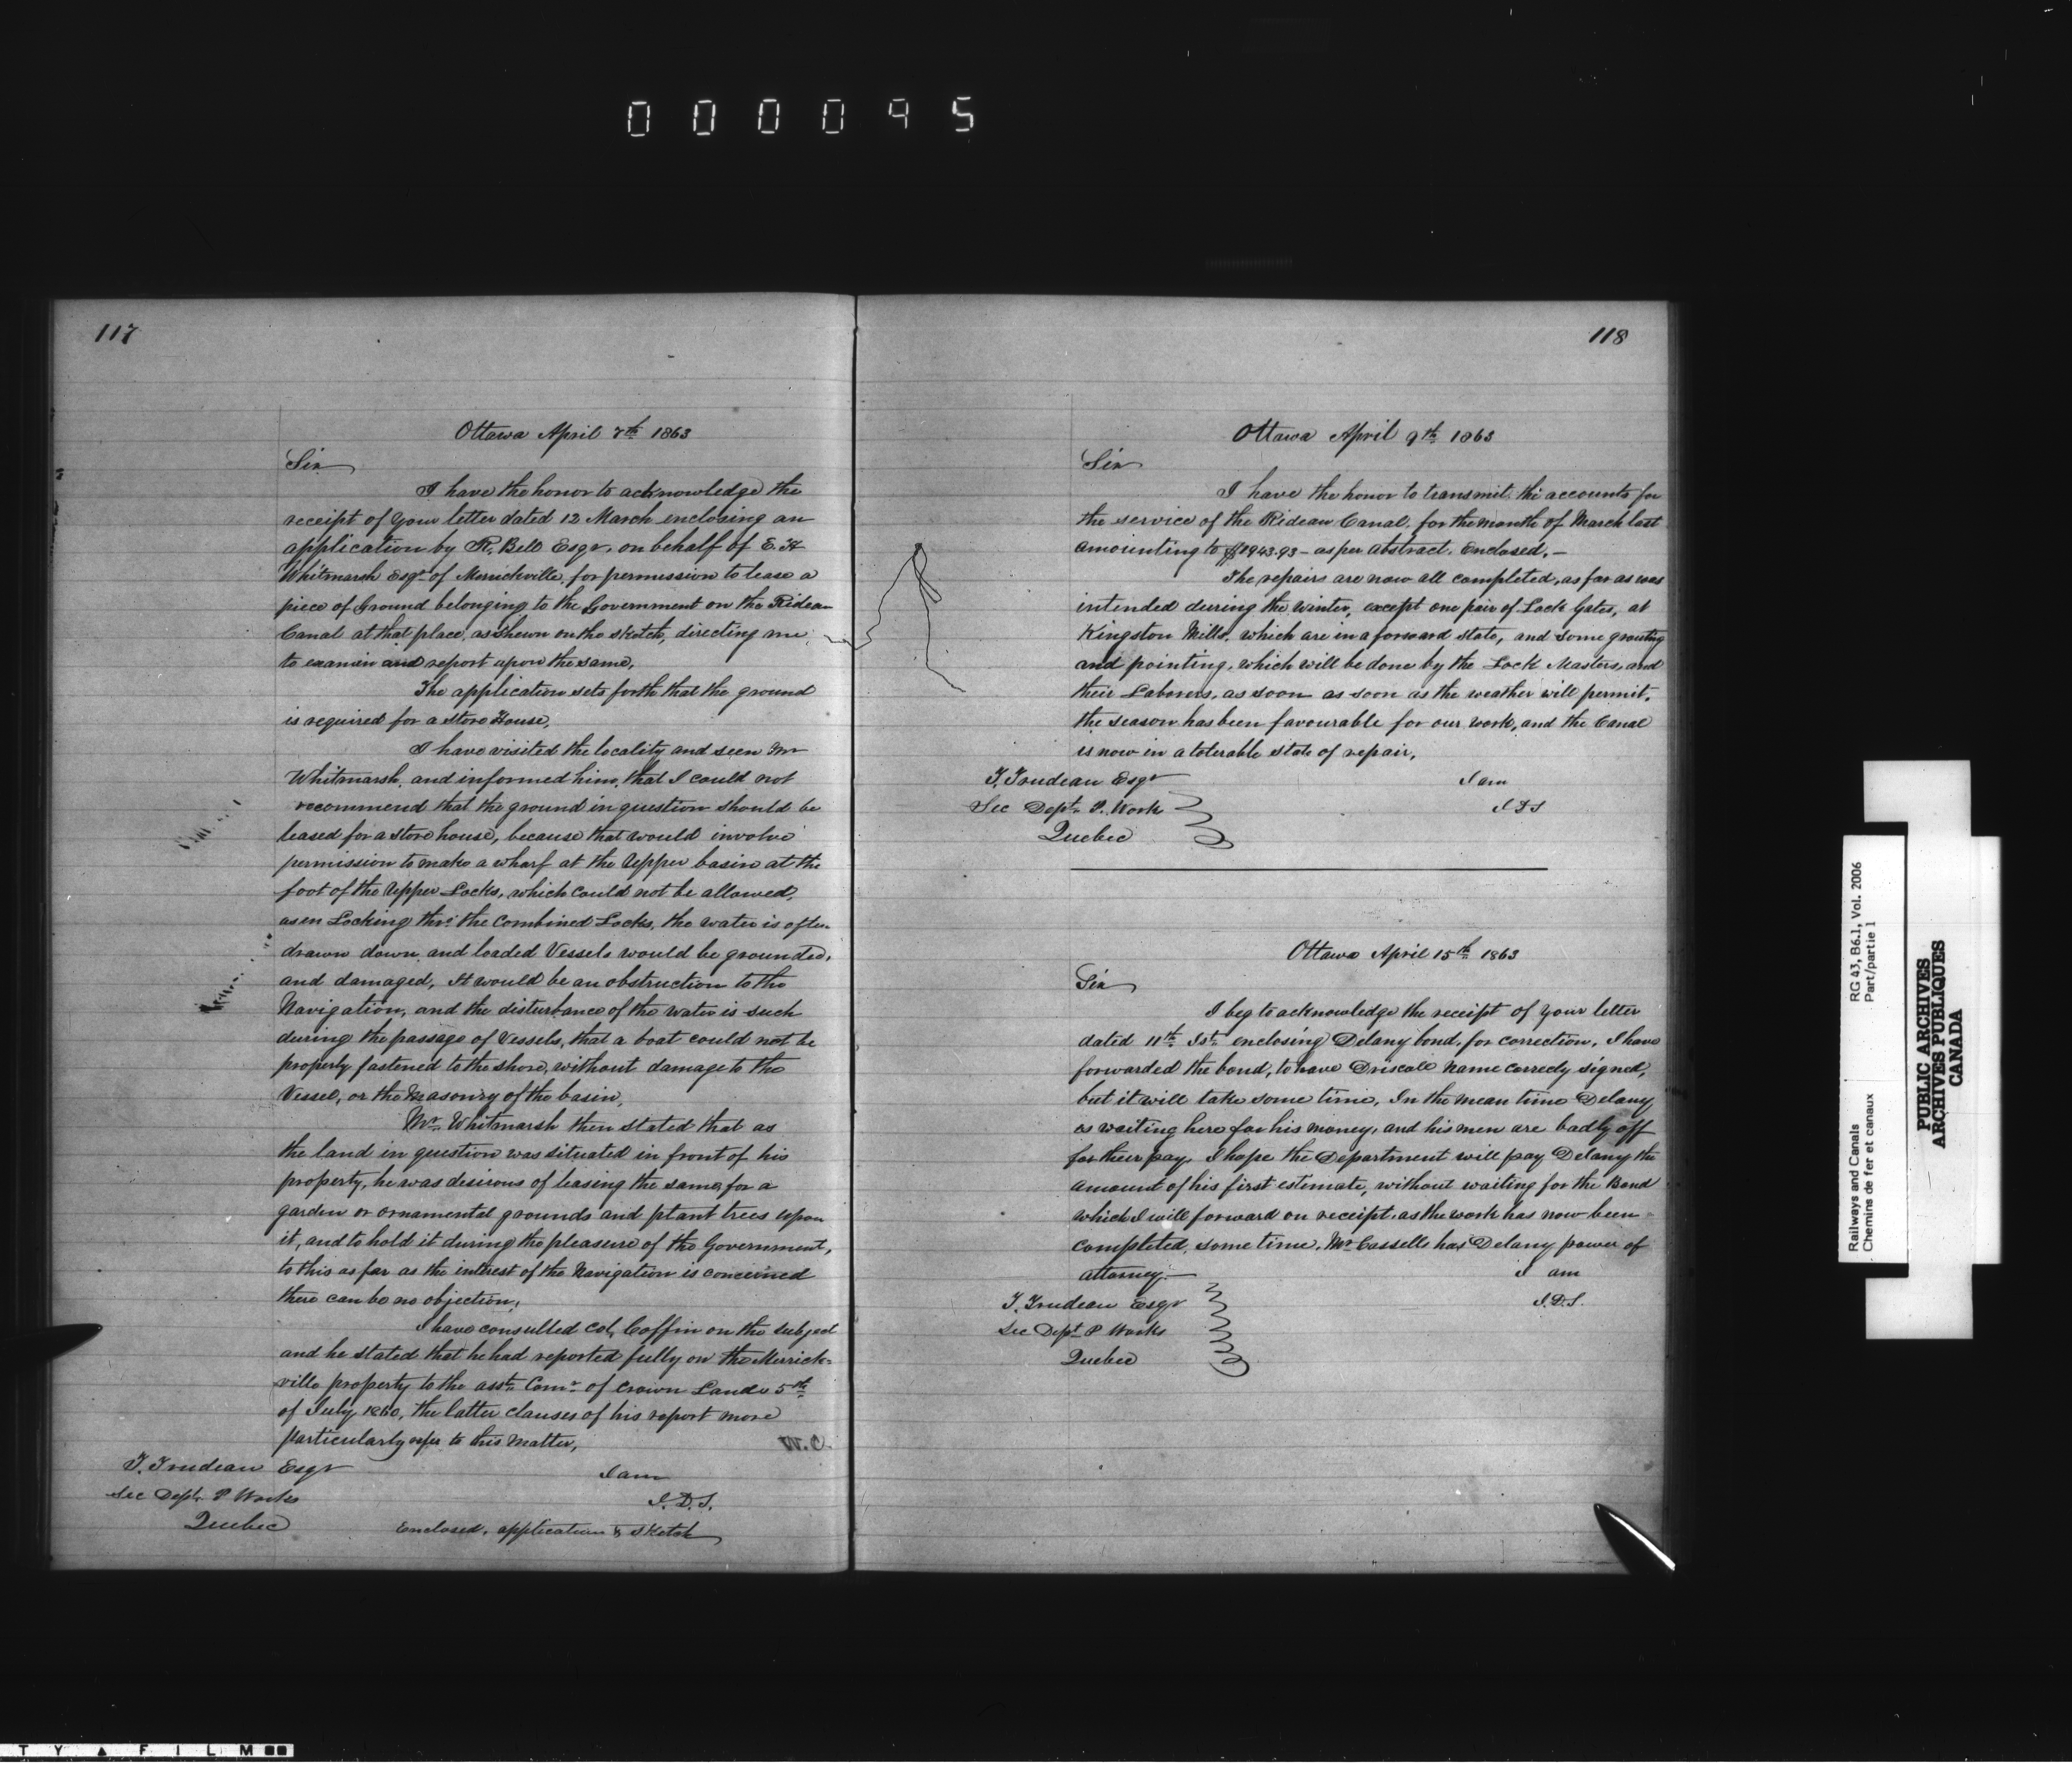 000095
117
Ottawa April 7th 1863
Sir
I have the honor to acknowledge the
receipt of your letter dated 12 March enclosing an
application by R. Bell Esqr. on behalf of E. H
Whitmarsh Esqr of Merrickville, for permission to lease a
piece of Ground belonging to the Government on the Rideau
Canal at that place, as shewn on the sketch, directing me
to examin and report upon the same,
The application sets forth that the ground
is required for a store House,
I have visited the locality and seen Mr
Whitmarsh, and informed him, that I could not
recommend that the ground in question should be
leased for a store house, because that would involve
permission to make a wharf at the Upper basin at the
foot of the Upper Locks, which could not be allowed,
as in Locking thro' the Combined Locks, the water is often
drawn down, and loaded Vessels would be grounded,
and damaged, It would be an obstruction to the
Navigation, and the disturbance of the water is such
during the passage of Vessels, that a boat could not be
properly fastened to the shore, without damage to the
Vessel, or the Masonry of the basin,
Mr. Whitmarsh then stated that as
the land in question was situated in front of his
property, he was desirous of leasing the same, for a
garden or ornamental grounds and plant trees upon
it, and to hold it during the pleasure of the Government,
to this as far as the interest of the Navigation is concerned
there can be no objection,
I have consulted Col, Coffin on the subject
and he stated that he had reported fully on the Merrick=
ville property to the asst. Comr. of Crown Lands 5th
of July 1860, the latter clauses of his report more
particularly refer to this matter,
W. C.
T. Trudeau Esqr
I am
Sec Dept. P Works
J. D. S.
Quebec
Enclosed, application & sketch
118
Ottawa April 9th 1863
Sir
I have the honor to transmit, the accounts for
the service of the Rideau Canal, for the month of March last
amounting to $1943.93 - as per abstract. Enclosed. -
The repairs are now all completed, as far as was
intended during the winter, except one pair of Lock Gates, at
Kingston Mills, which are in a forward state, and some grouting
and pointing, which will be done by the Lock Masters, and
their Laborers, as soon as soon as the weather will permit.
the season has been favourable for our work, and the Canal
is now in a tolerable state of repair,
T. Trudeau Esqr
I am
Sec Dept. P. Work
J D S
Quebec
Ottawa April 15th 1863
Sir
I beg to acknowledge the receipt of your letter
dated 11th Ist. enclosing Delany bond, for correction, I have
forwarded the bond, to have Driscoll name correcly signed,
but it will take some time, In the mean time Delany
is waiting here for his money, and his men are badly off
for their pay. I hope the Department will pay Delany the
amount of his first estimate, without waiting for the Bond
which I will forward on receipt, as the work has now been
completed, some time, Mr Cassells has Delany power of
attorney. -
I am
T. Trudeau Esqr
J. D. S.
Sec Dept P Works
Quebec
Railways and Canals
Chemins de fer et canaux
RG 43, B6.1, Vol. 2006
Part/partie 1
PUBLIC ARCHIVES
ARCHIVES PUBLIQUES
CANADA
T Y ▲ F I L M